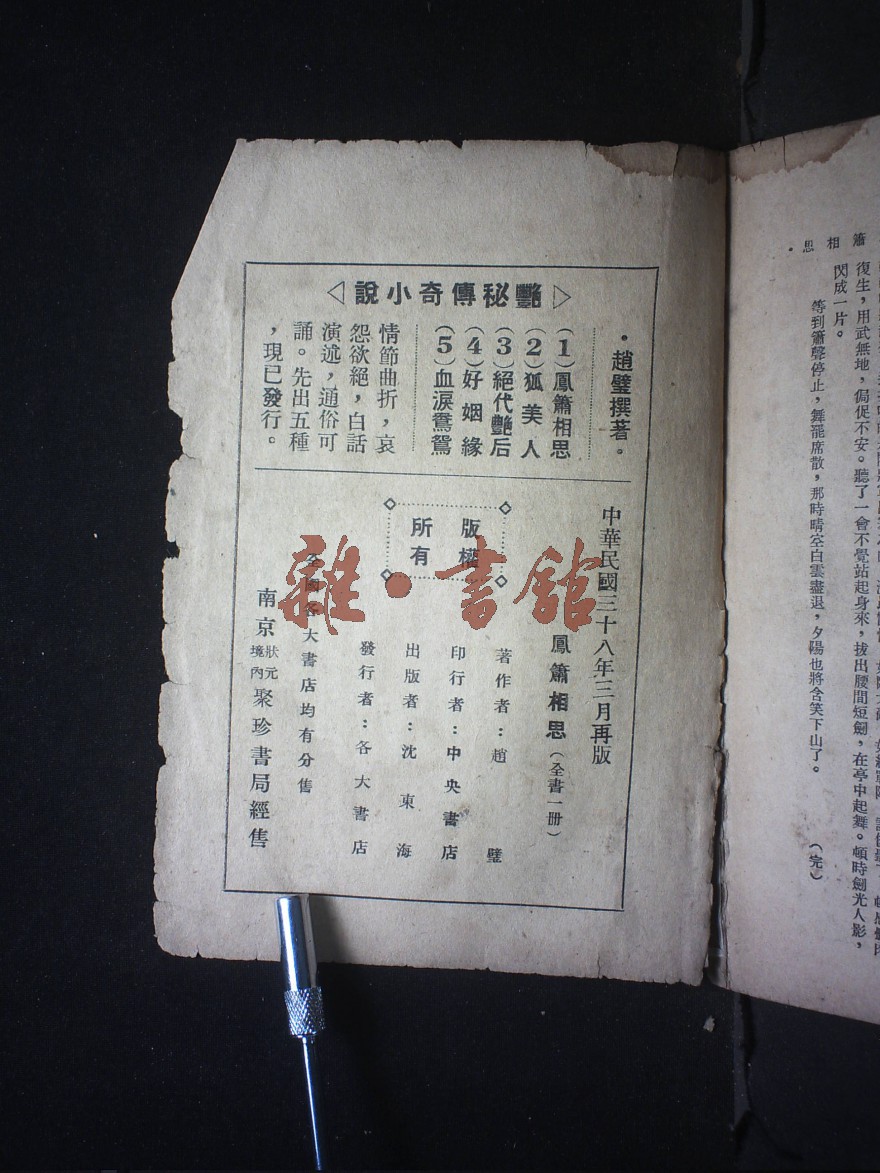 簫相思
復生，用武無地，侷促不安。聽了一會不覺站起身來，拔出腰間短劍，在亭中起舞。頓時劍光人影，
閃成一片。
等到簫聲停止，舞罷席散，那時晴空白雲盡退，夕陽也將含笑下山了。
（完）
▷艷秘傳奇小說◁
·趙璧撰著。
(1)鳳簫相思
(2)狐美人
(3)絕代艷后
(4)好姻緣
(5)血淚鴛鴦
情節曲折，哀
怨欲絕，白話
演述，通俗可
誦。先出五種
，現已發行。
中華民國三十八年三月再版
鳳簫相思（全書一冊）
版權
所有
著作者：趙璧
印行者：中央書店
出版者：沈東海
發行者：各大書店
全國各大書店均有分售
南京狀元境內聚珍書局經售
雜·書館